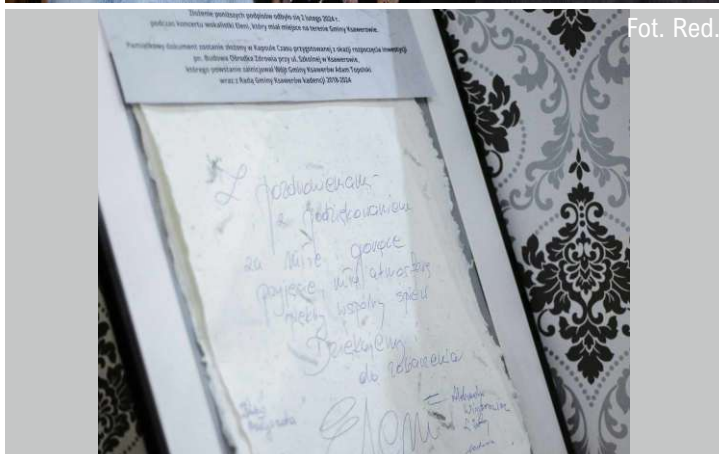 Fot. Red.
Złożenie poniższych podpisów odbyło się 2 lutego 2024 r.
podczas koncertu wokalistki Eleni, który miał miejsce na terenie Gminy Ksawerów.
Pamiątkowy dokument zostanie złożony w Kapsule Czasu przygotowanej z okazji rozpoczęcia inwestycji
pn. Budowa Ośrodka Zdrowia przy ul. Szkolnej w Ksawerowie,
którego powstanie zainicjował Wójt Gminy Ksawerów Adam Topolski
wraz z Radą Gminy Ksawerów kadencji 2018-2024
Z pozdrowieniami
z podziękowaniem
za miłe gorące
przyjęcie, miłą atmosferę
piękny wspólny śpiew
Dziękujemy
do zobaczenia
Eleni